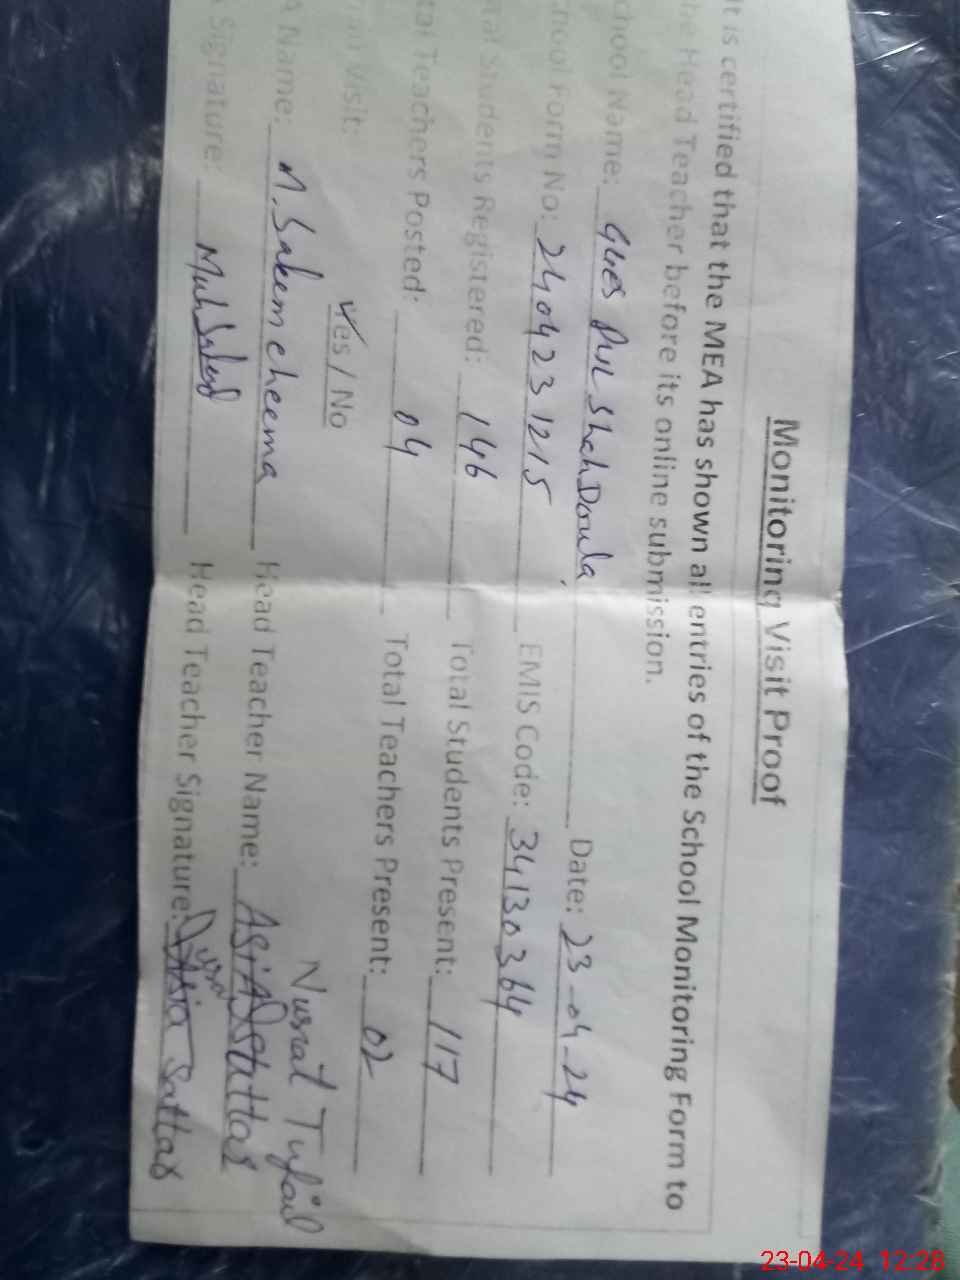 Monitoring Visit Proof
It is certified that the MEA has shown all entries of the School Monitoring Form to
the Head Teacher before its online submission.
chool Name: GGES Pul Shah Doula Date: 23-04-24
chool Form No: 240423 1215 EMIS Code: 34130364
tal Students Registered: 146 Total Students Present: 117
tal Teachers Posted: 04 Total Teachers Present: 02
Visit: Yes / No
Nusrat Tufail
A Name: M. Saleem cheema Head Teacher Name: Asia Sattar
A Signature: Head Teacher Signature: Asia Sattar
23-04-24 12:28